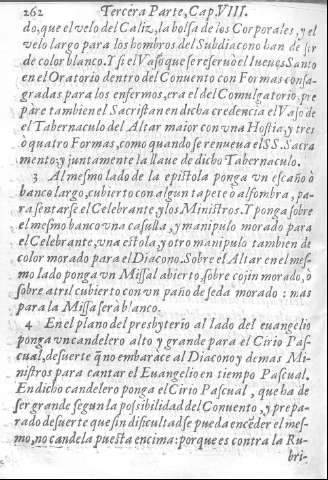 262 Tercera Parte, Cap. VIII.
do, que el velo del Caliz, la bolsa de los Corporales, y el
velo largo para los hombros del Subdiacono han de ser
de color blanco. Y si el Vaso que se reseruò el Iueues Santo
en el Oratorio dentro del Conuento con Formas consa-
gradas para los enfermos, era el del Comulgatorio, pre
pàre tambien el Sacristan en dicha credencia el Vaso de
el Tabernaculo del Altar maior con vna Hostia, y tres
ò quatro Formas, como quando se renueua el SS. Sacra
mento; y juntamente la llaue de dicho Tabernaculo.
3 Al mesmo lado de la epistola ponga vn escaño ò
banco largo, cubierto con algun tapete ò alfombra, pa-
ra sentarse el Celebrante, y los Ministros. Y ponga sobre
el mesmo banco vna casulla, y manipulo morado para
el Celebrante, vna estola, y otro manipulo tambien de
color morado para el Diacono. Sobre el Altar en el mes-
mo lado ponga vn Missal abierto, sobre cojin morado, ò
sobre atril cubierto con vn paño de seda morado: mas
para la Missa serà blanco.
4 En el plano del presbyterio al lado del euangelio
ponga vn candelero alto y grande para el Cirio Pas-
cual, de suerte q̃ no embarace al Diacono y demas Mi-
nistros para cantar el Euangelio en tiempo Pascual.
En dicho candelero ponga el Cirio Pascual, que ha de
ser grande segun la possibilidad del Conuento, y prepa-
rado de suerte que sin dificultad se pueda encèder el mes-
mo, no candela puesta encima: porque es contra la Ru-
bri-